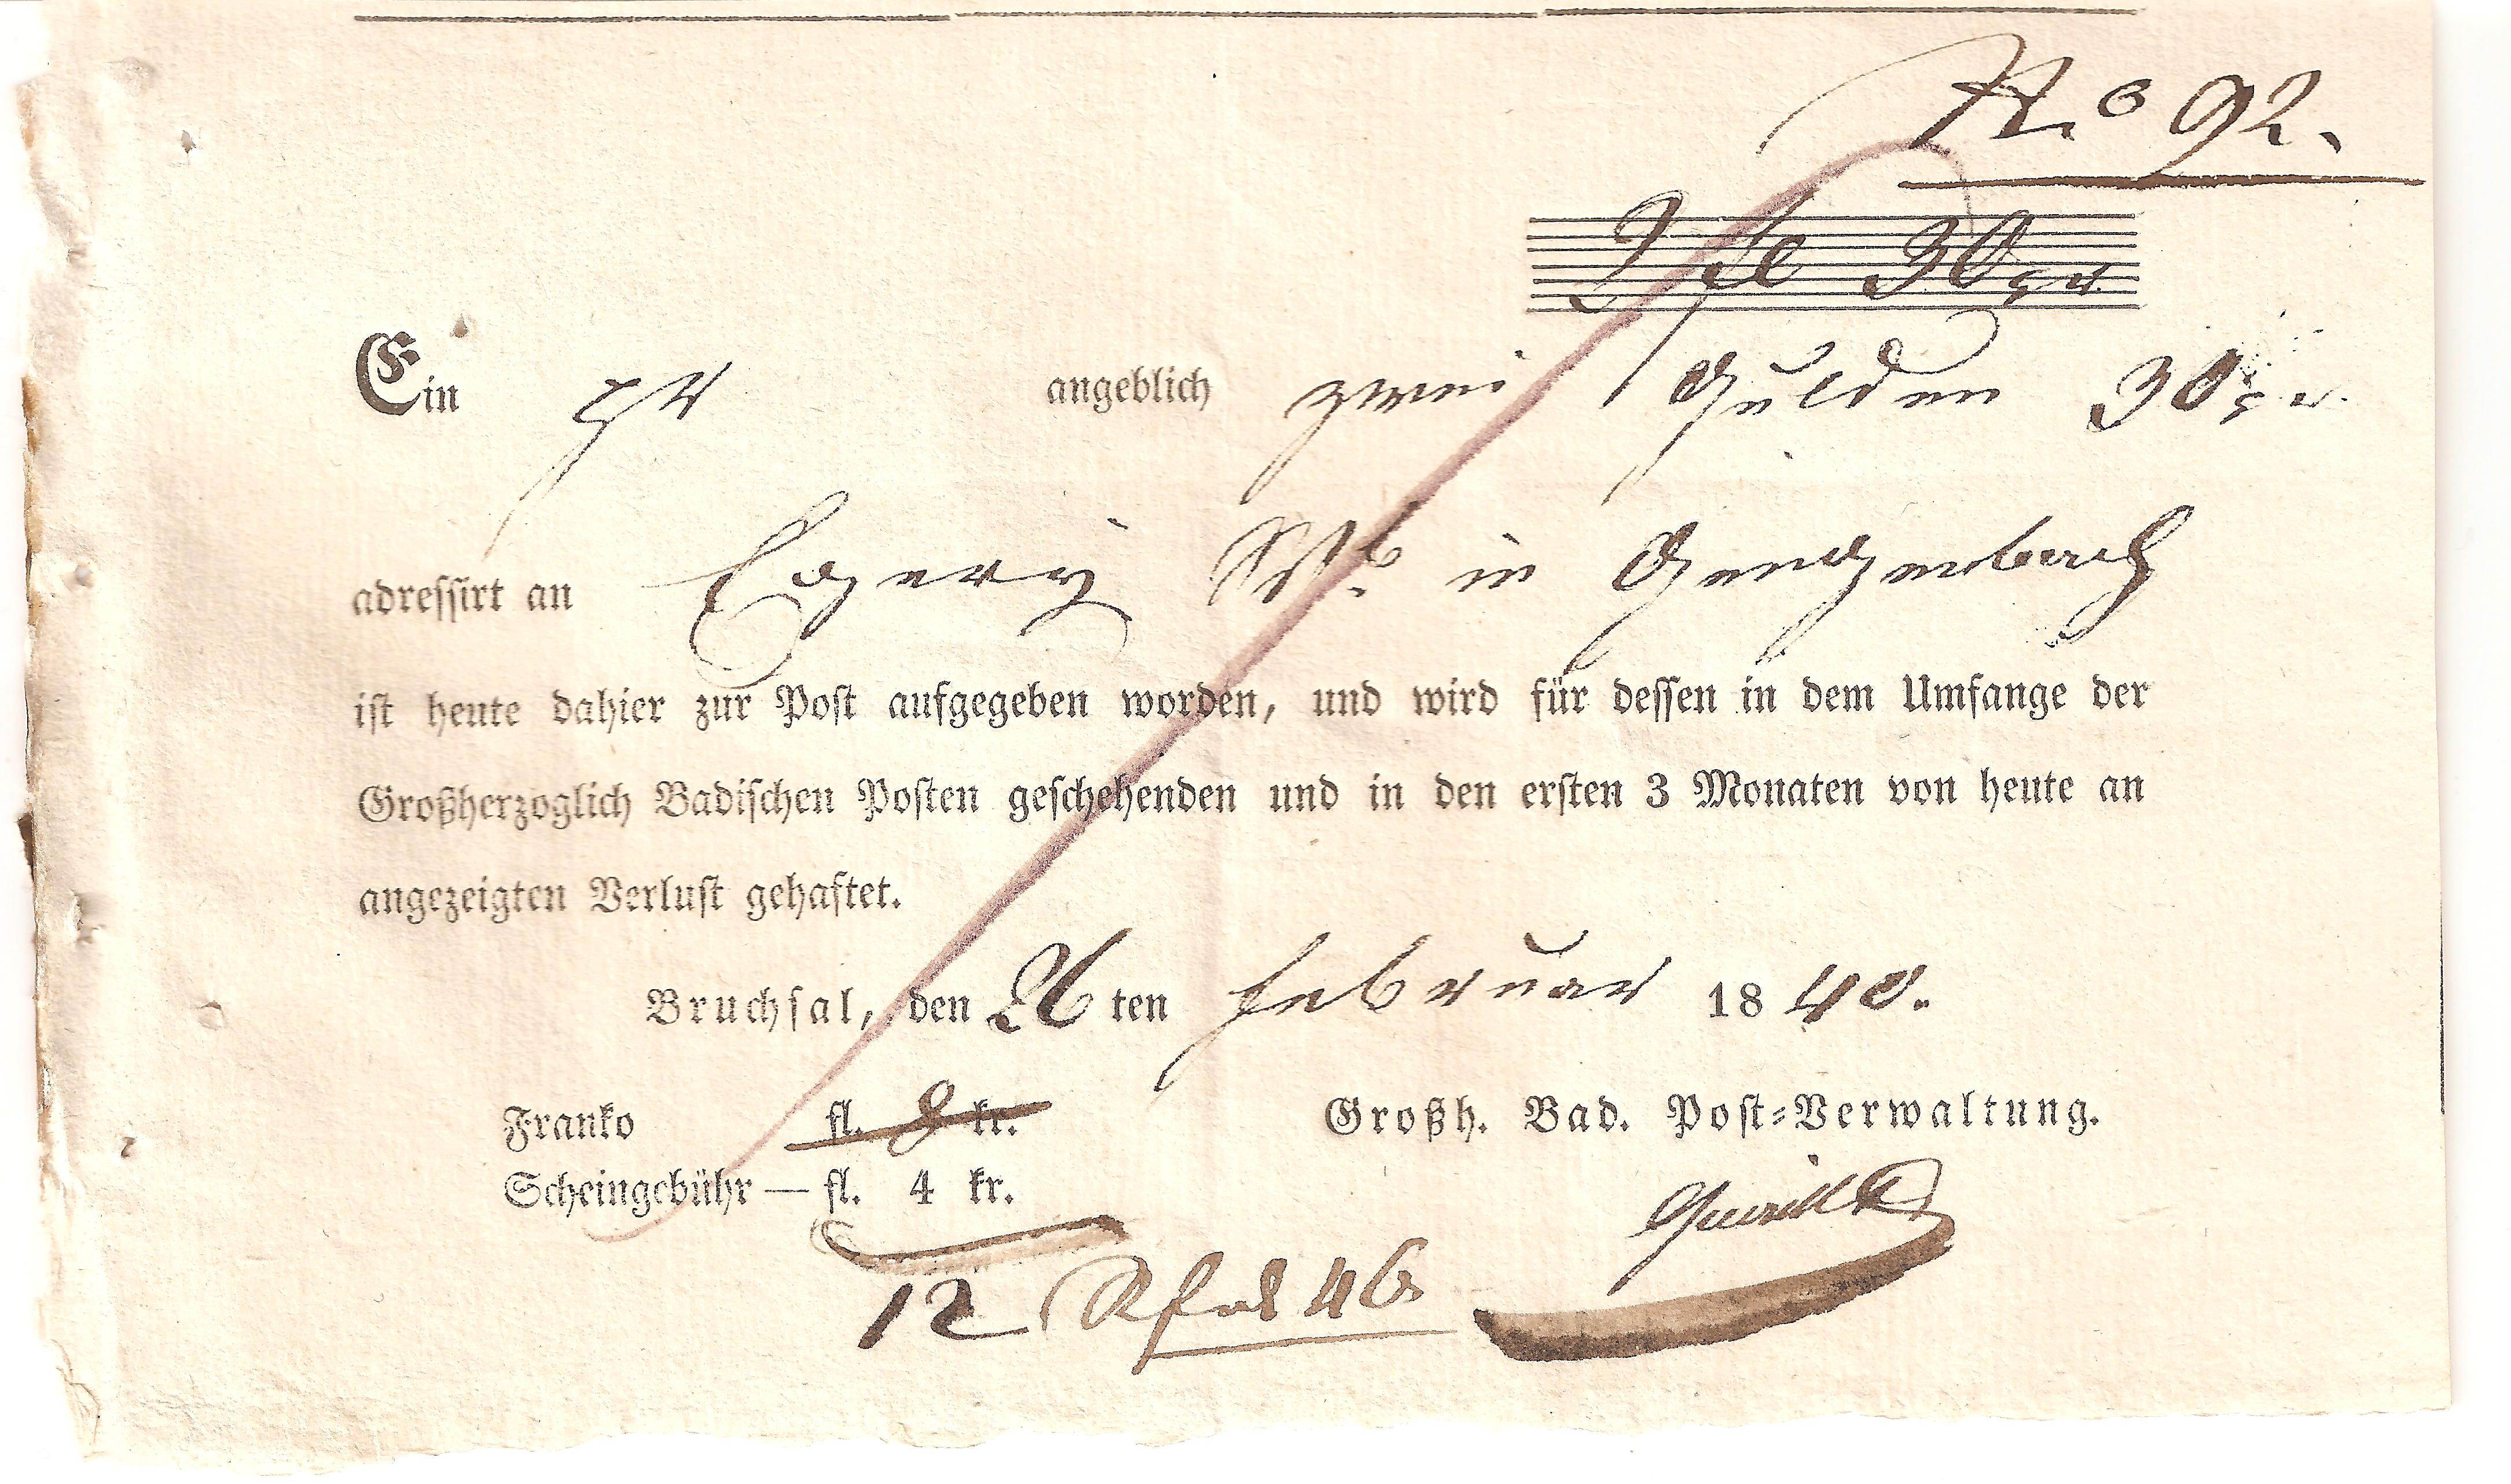 No 92.
2 fl 30 xr
Ein angeblich zwei Gulden 30 xr.
adressirt an in Gengenbach
ist heute dahier zur Post aufgegeben worden, und wird für dessen in dem Umfange der
Großherzoglich Badischen Posten geschehenden und in den ersten 3 Monaten von heute an
angezeigten Verlust gehaftet.
Bruchsal, den 26 ten Februar 1840.
Franko fl. 8 kr. Großh. Bad. Post-Verwaltung.
Scheingebühr — fl. 4 kr.
12 46